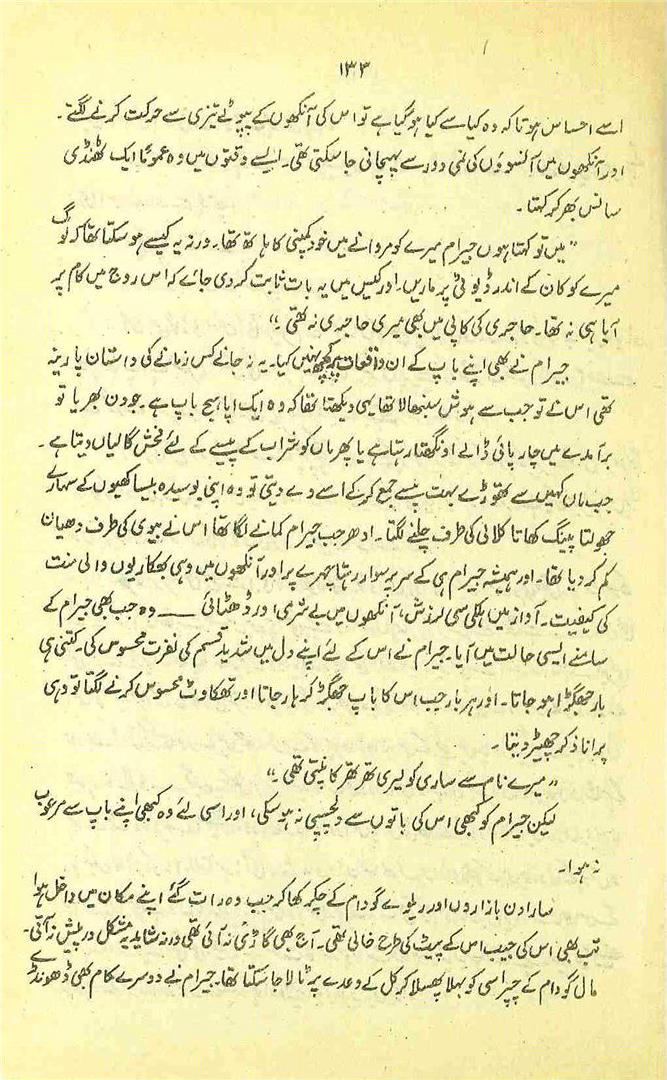 ۱۳۳
اسے احساس ہوتا کہ وہ کیا سے کیا ہو گیا ہے تو اس کی آنکھوں کے پپوٹے تیزی سے حرکت کرنے لگتے۔
اور آنکھوں میں آنسوؤں کی نمی دور سے پہچانی جا سکتی تھی۔ ایسے وقتوں میں وہ عموماً ایک ٹھنڈی
سانس بھر کر کہتا۔
”میں تو کہتا ہوں جیرام میرے کو مروانے میں خود کمپنی کا ہاتھ تھا۔ ورنہ یہ کیسے ہو سکتا تھا کہ لوگ
میرے کو کان کے اندر ڈیوٹی پر ماریں۔ اور کیس میں یہ بات ثابت کر دی جائے کہ اس روج میں کام پر
آیا ہی نہ تھا۔ حاجری کی کاپی میں بھی میری حاجری نہ تھی۔“
جیرام نے بھی اپنے باپ کے ان واقعات پر کچھ نہیں کیا۔ یہ نہ جانے کس زمانے کی داستان پارینہ
تھی اس نے تو جب سے ہوش سنبھالا تھا یہی دیکھتا تھا کہ وہ ایک اپاہج باپ ہے۔ جو دن بھر یا تو
برآمدے میں چارپائی ڈالے اونگھتا رہتا ہے یا پھر ماں کو شراب کے پیسے کے لئے فحش گالیاں دیتا ہے۔
جب ماں کہیں سے تھوڑے بہت پیسے جمع کر کے اسے دے دیتی تو وہ اپنی بوسیدہ بیساکھیوں کے سہارے
جھولتا پینگ کھاتا کلالی کی طرف چلنے لگتا۔ ادھر جب جیرام کمانے لگا تھا اس نے بیوی کی طرف دھیان
کم کر دیا تھا۔ اور ہمیشہ جیرام ہی کے سر پر سوار رہتا چہرے پر اور آنکھوں میں وہی بھکاریوں والی منت
کی کیفیت۔ آواز میں ہلکی سی لرزش، آنکھوں میں بے شرمی اور ڈھٹائی ــــــ وہ جب بھی جیرام کے
سامنے ایسی حالت میں آیا۔ جیرام نے اس کے لئے اپنے دل میں شدید قسم کی نفرت محسوس کی۔ کتنی ہی
بار جھگڑا ہو جاتا۔ اور ہر بار جب اس کا باپ جھگڑ کر ہار جاتا اور تھکاوٹ محسوس کرنے لگتا تو وہی
پرانا ذکر چھیڑ دیتا۔
”میرے نام سے ساری کولیری تھر تھر کانپتی تھی۔“
لیکن جیرام کو کبھی اس کی باتوں سے دلچسپی نہ ہو سکی، اور اسی لئے وہ کبھی اپنے باپ سے مرعوب
نہ ہوا۔
سارا دن بازاروں اور ریلوے گودام کے چکر کھا کر جب وہ رات گئے اپنے مکان میں داخل ہوا
تب بھی اس کی جیب اس کے پیٹ کی طرح خالی تھی۔ آج بھی گاڑی نہ آئی تھی ورنہ شاید یہ مشکل درپیش نہ آتی۔
مال گودام کے چپراسی کو بہلا پھسلا کر کل کے وعدے پر ٹالا جا سکتا تھا۔ جیرام نے دوسرے کام بھی ڈھونڈے